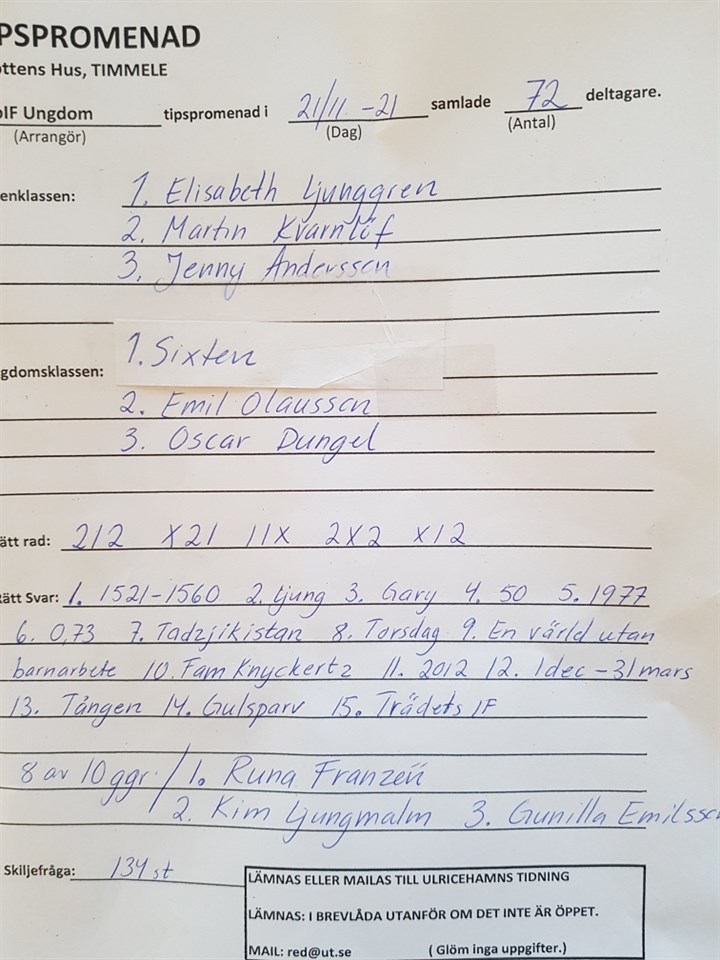 PSPROMENAD
ottens Hus, TIMMELE
oIF Ungdom tipspromenad i 21/11 -21 samlade 72 deltagare.
(Arrangör) (Dag) (Antal)
enklassen: 1. Elisabeth Ljunggren
2. Martin Kvarnlöf
3. Jenny Andersson
gdomsklassen: 1. Sixten
2. Emil Olausson
3. Oscar Dungel
ätt rad: 212 X21 11X 2X2 X12
Rätt Svar: 1. 1521-1560 2. Ljung 3. Gary 4. 50 5. 1977
6. 0,73 7. Tadzjikistan 8. Torsdag 9. En värld utan
barnarbete 10. Fam Knyckertz 11. 2012 12. 1 dec - 31 mars
13. Tången 14. Gulsparv 15. Trädets IF
8 av 10 ggr / 1. Runa Franzén
2. Kim Ljungmalm 3. Gunilla Emilsso
Skiljefråga: 134 st
LÄMNAS ELLER MAILAS TILL ULRICEHAMNS TIDNING
LÄMNAS: I BREVLÅDA UTANFÖR OM DET INTE ÄR ÖPPET.
MAIL: red@ut.se ( Glöm inga uppgifter.)